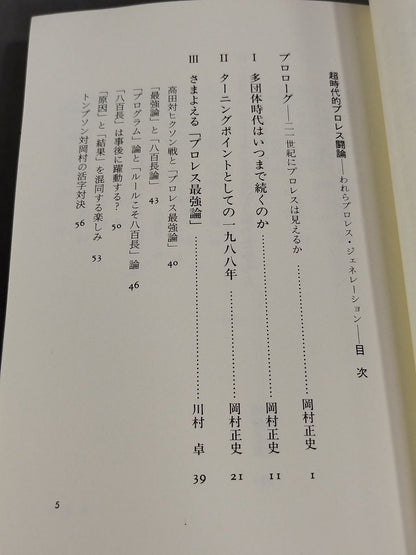 超時代的プロレス闘論――われらプロレス・ジェネレーション――目次
プロローグ――二一世紀にプロレスは見えるか………岡村正史 1
Ⅰ 多団体時代はいつまで続くのか………岡村正史 11
Ⅱ ターニングポイントとしての一九八八年………岡村正史 21
Ⅲ さまよえる「プロレス最強論」………川村 卓 39
高田対ヒクソン戦と「プロレス最強論」 40
「最強論」と「八百長論」 43
「プログラム」論と「ルールこそ八百長」論 46
「八百長」は事後に躍動する? 50
「原因」と「結果」を混同する楽しみ 53
トンプソン対岡村の活字対決 56
5